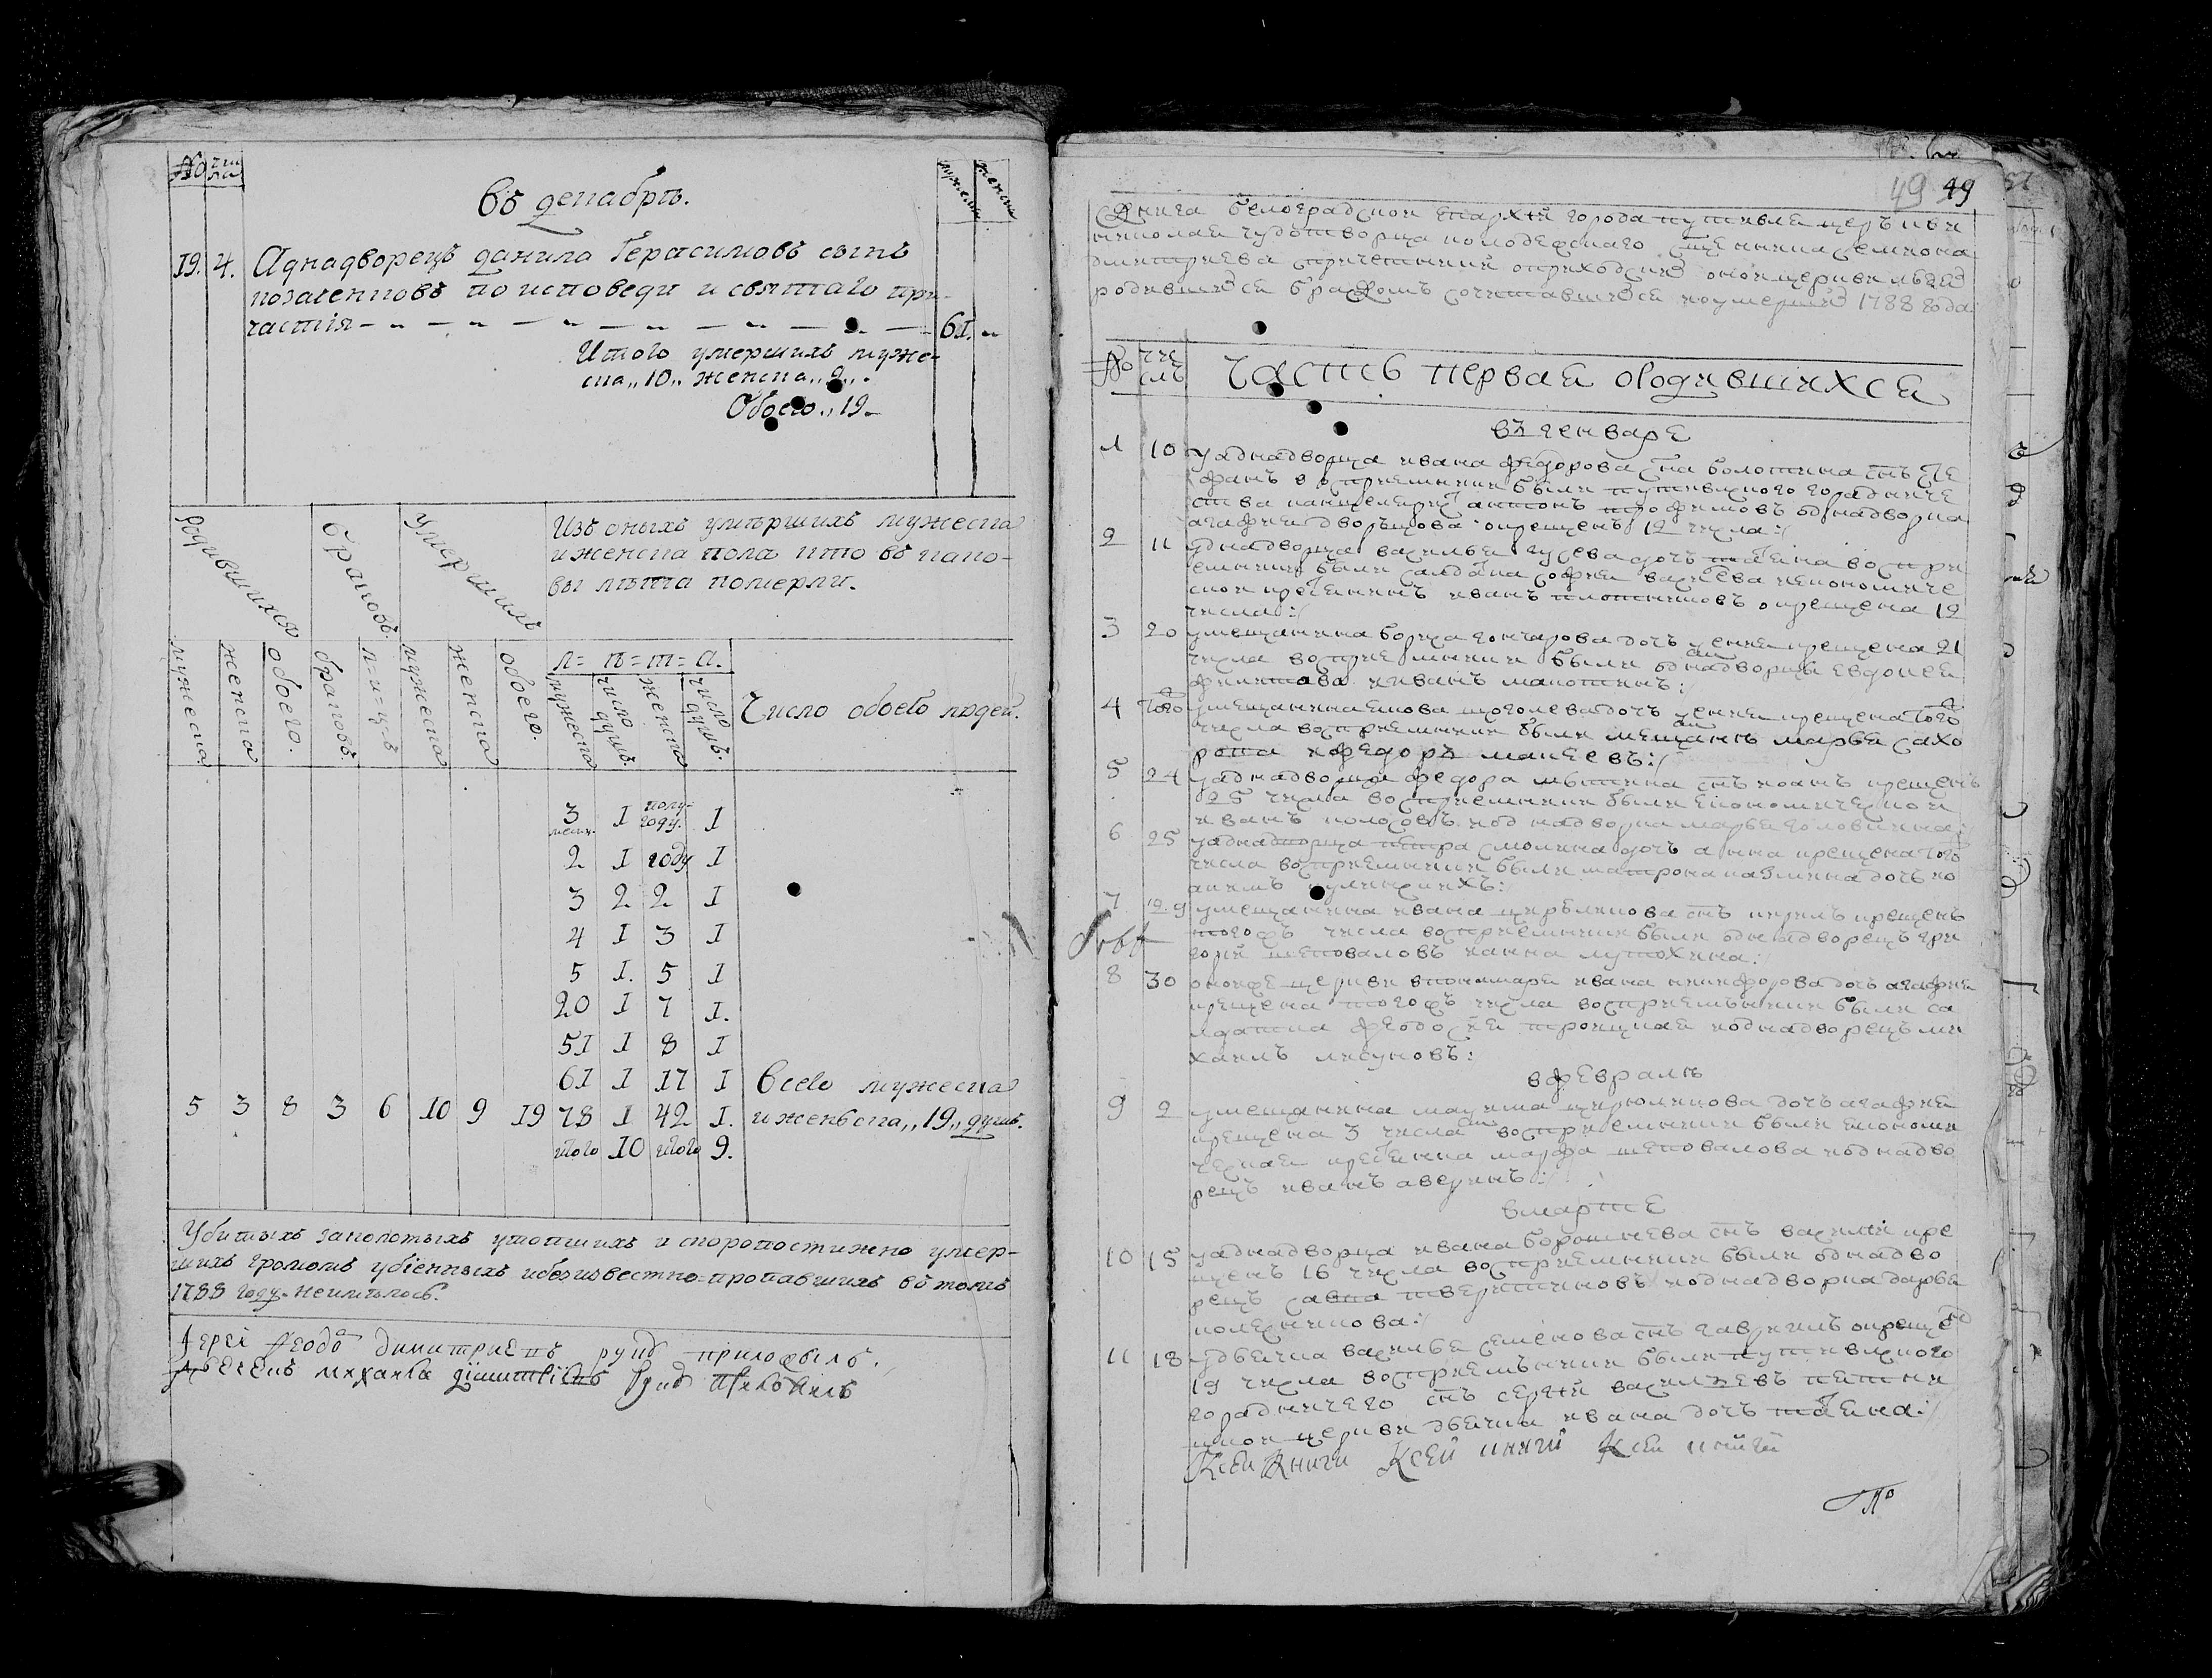 № чи сла
мужеска женска
въ декабрѣ.
19. 4. Аднадворецъ данила Герасимовъ сынъ
Козаченковъ по исповеди и святаго при-
частія - " - " - " - " - " - " - 61. "
Итого умершихъ муже-
ска „10„ женска „9„.
Обоего „19-
Родившихся
браковъ.
Умершихъ
Изъ оныхъ умѣршихъ мужеска
и женска пола кто въ како-
вы лѣта померли.
мужеска женска обоего. браковъ. л=и=ц=ъ мужеска женска обоего.
л= ѣ= т= а.
мужеска число душъ. женска число душъ.
Число обоего людей.
3 месец. I полу- году. I
2 I году I
3 2 2 I
4 I 3 I
5 I. 5 I
20 I 7 I.
5I I 8 I
6I I I7 I Всего мужеска
5 3 8 3 6 10 9 19 78 I 42 I. и женьска „19„ душъ.
итого 10 итого 9.
Убитыхъ заколотыхъ утопшихъ и скоропостижно умер-
шихъ громомъ убіенныхъ и безизвестно-пропавшихъ въ томъ
1788 году. неимѣлось.
Іереі Ѳеодо димитриевъ руку приложылъ.
михаила руку приложилъ
49 49
Книга белоградской епархїи города путивля церькви
николая чудотворца священника семиона
дмитриева спричетники оприходскихъ оной церкви людей
родившихся бракомъ сочитавшихся и умершихъ 1788 года
№ чи слъ часть первая ородившихся
въ генваре
1 10 уаднадворца ивана федорова сна болотина снъ сте
фанъ восприемники были путивлского городниче
ства канцелерист антонъ трофимовъ однадворка
агафия дворъцова окрещенъ 12 числа:/
2 11 уднадворца василья гусева дочь таїяна воспри
емники были салдатка софия васїева иекономиче
ской иванъ плотниковъ окрещена 12
числа:/
3 20 умещанина бориса гончарова дочь ксения крещена 21
числа восприемники были однадворцы евдокея
филатова иванъ макошинъ:/
4 того умещанина якова щоголева дочь ксения крещена того
числа восприемники были мещане марья сахо
рота ифедоръ макеевъ:/
5 24 уаднадворца федора мытина снъ иоанъ крещенъ
25 числа восприемники были економической
иванъ полозовъ иоднадворка марья головикина:
6 25 уаднадворца петра смолина дочь анна крещена того
числа восприемники были матрона казмина дочь ио
акимъ
7 умещанина ивана церюликова снъ кирилъ крещенъ
того жъ числа восприемники были однадворецъ гри
горїй шеповаловъ ианна лутохина:/
8 30 оноиже церкви впономаря ивана никифорова дочь агафия
крещена того жъ числа восприемъники были са
лдатка феодосїя троицкая иоднадворецъ ми
хаилъ лисуновъ:
вфевралѣ
9 2 умещанина максима церюликова дочь агафия
крещена 3 числа восприемники были економи
ческая марфа шеповалова иоднадво
рецъ иванъ аверинъ:/
вмарте
10 15 уаднадворца ивана борошнева снъ василїй кре
щенъ 16 числа восприемники были однадво
рецъ савка тверитиновъ иоднадворка дарья
полезникова:/
11 18 удьячка василья семенова снъ гавриилъ окреще
19 числа восприемъники были путивлского
городничего снъ сергїй василиевъ
церкви дьячка ивана дочь таїяна:/
Ксей книги Ксей книги Ксей книги
По